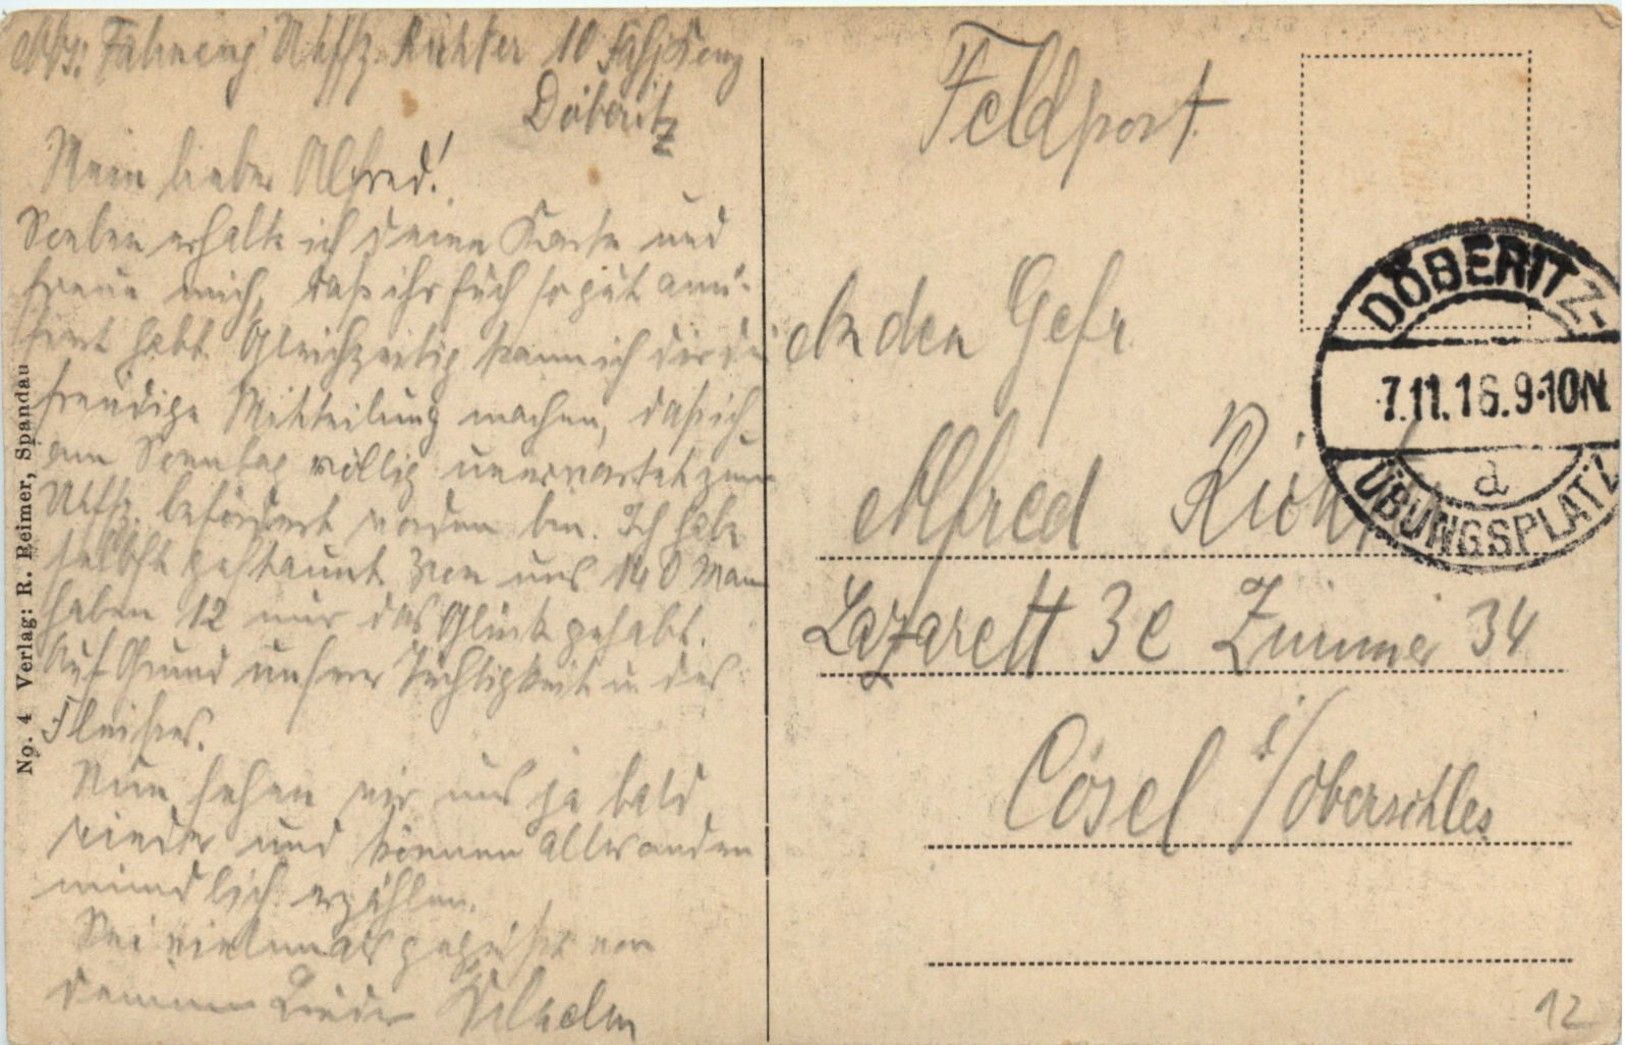 Abs: Fähnrich Uffz. Richter 10
Döberitz
Mein lieber Alfred!
Soeben erhalte ich deine Karte und
freue mich, daß ihr Euch so gut amü-
siert habt. Gleichzeitig kann ich dir die
freudige Mitteilung machen, daß ich
am Sonntag völlig unerwartet zum
Uffz. befördert worden bin. Ich habe
selbst gestaunt. Von uns 140 Mann
haben 12 nur das Glück gehabt.
Auf Grund unserer Tüchtigkeit u des
Fleißes.
Nun sehen wir uns ja bald
wieder und können alles andere
mündlich erzählen.
Sei vielmals gegrüßt von
deinem Bruder Wilhelm
No. 4 Verlag: R. Reimer, Spandau
Feldpost
An den Gefr.
Alfred Richter
Lazarett 3e Zimmer 34
Cosel i/Oberschles
DÖBERITZ-
7.11.16.9-10N.
a
ÜBUNGSPLATZ
12